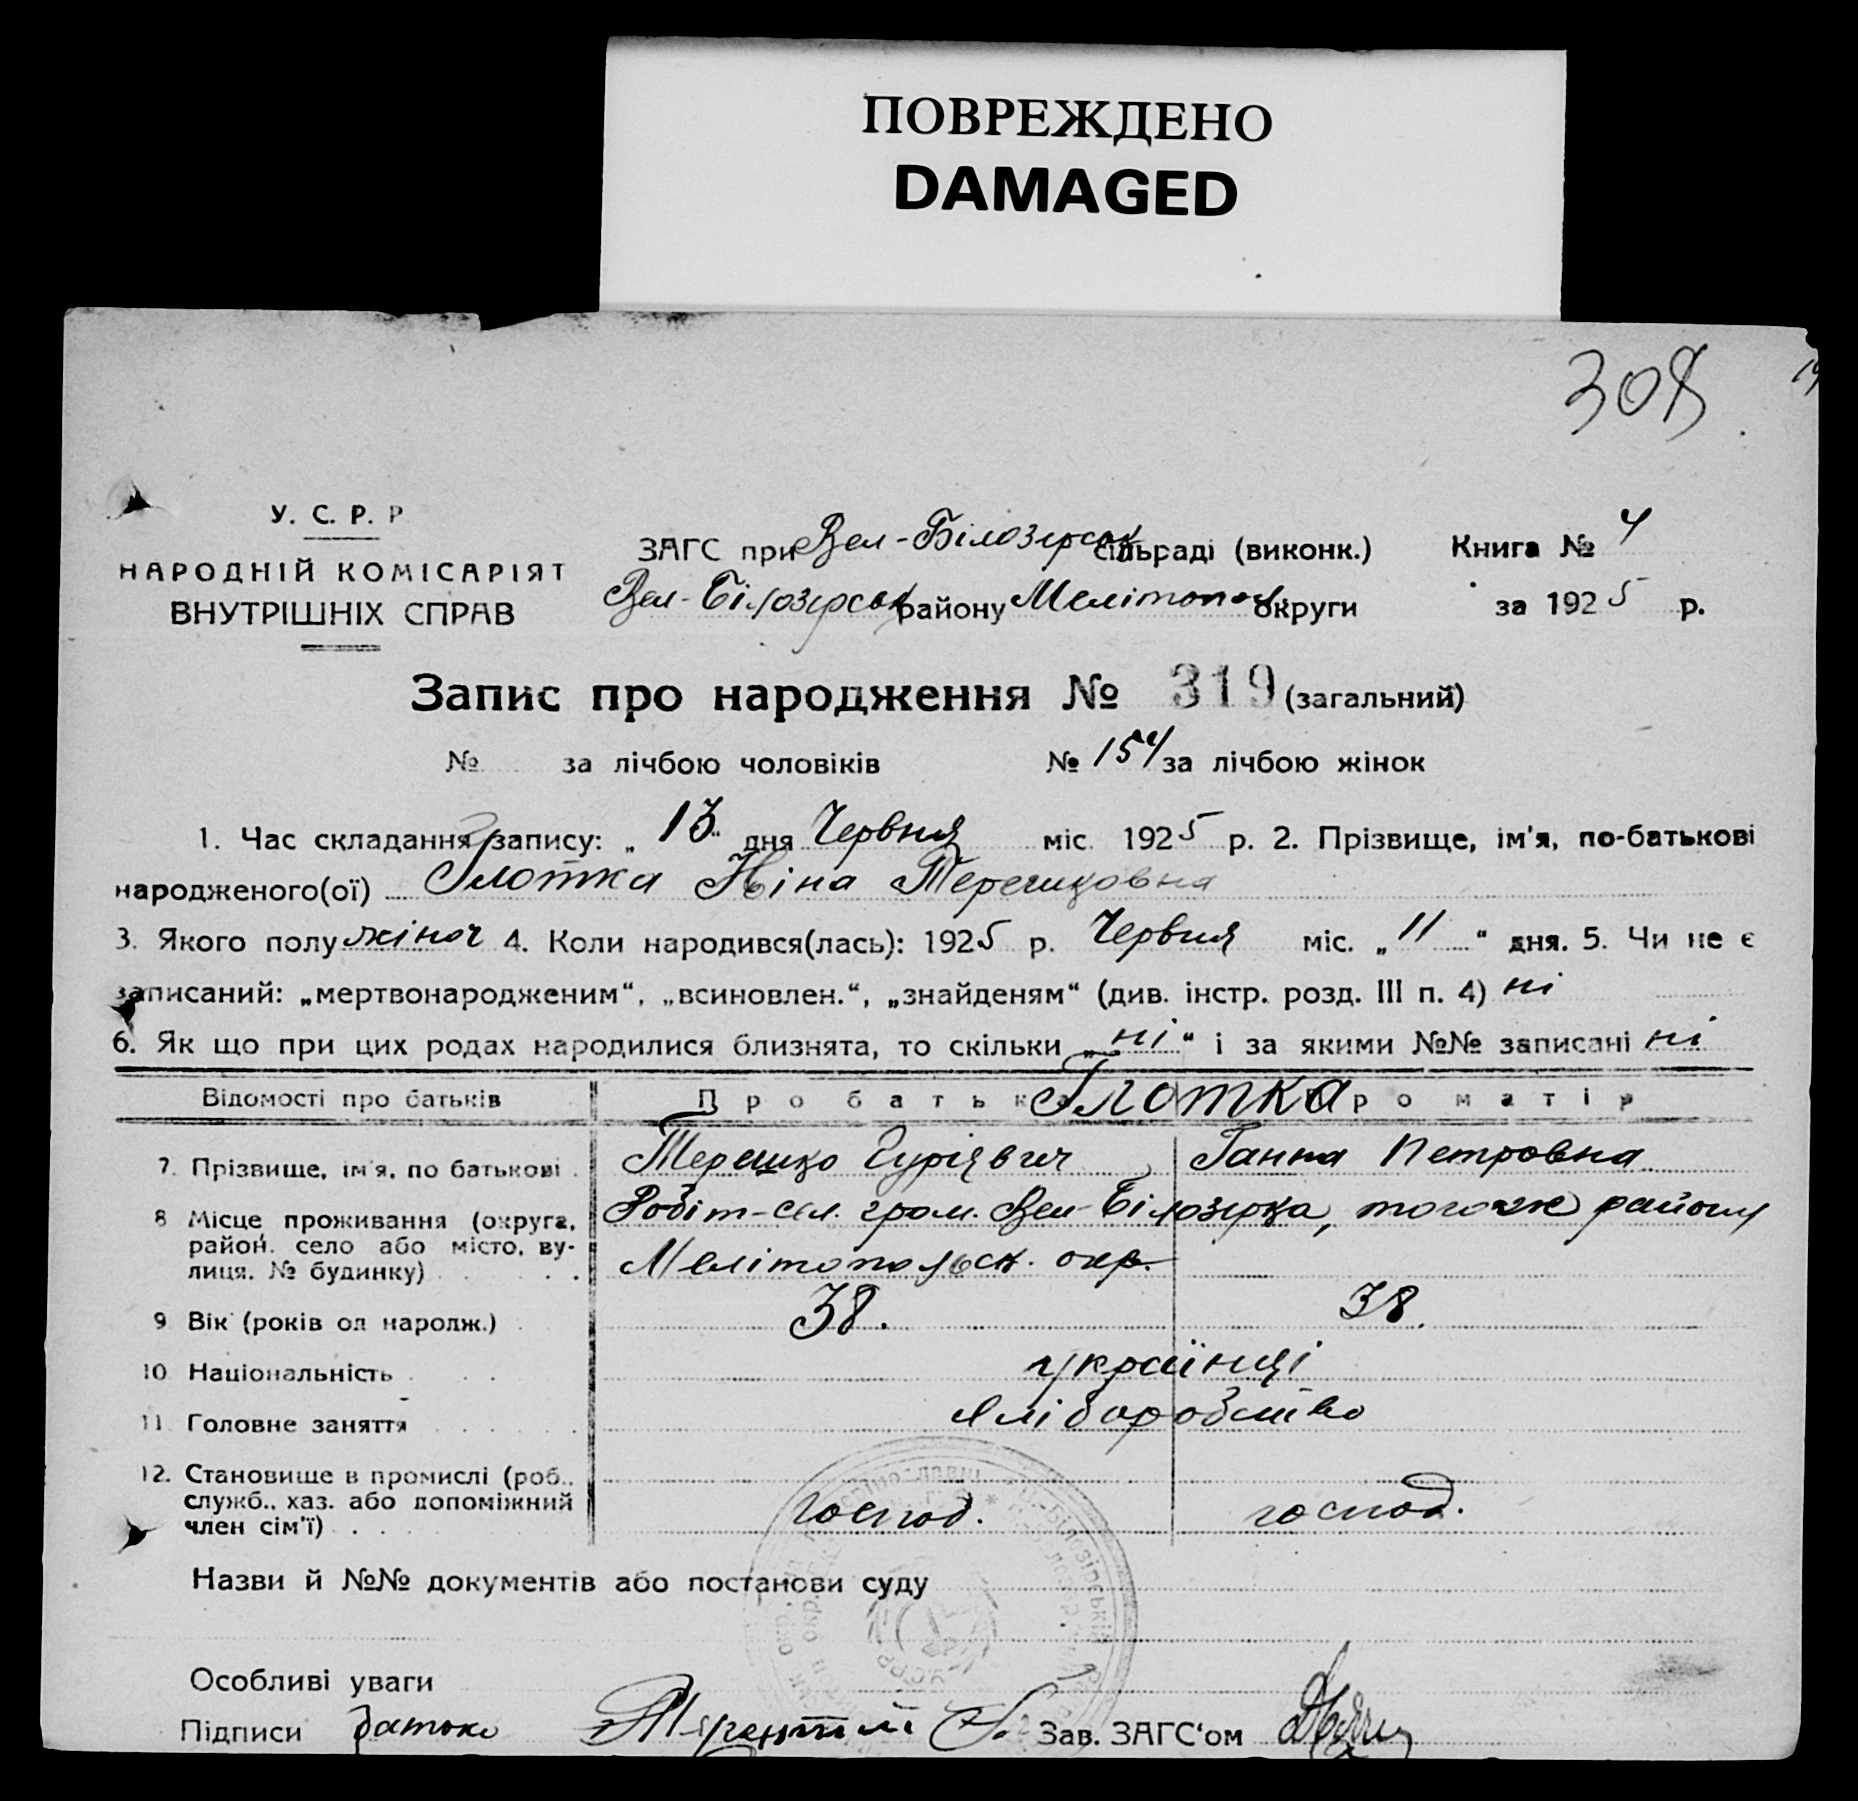 ПОВРЕЖДЕНО
DAMAGED
308
У. С. Р. Р
НАРОДНІЙ КОМІСАРІЯТ
ВНУТРІШНІХ СПРАВ
ЗАГС при Вел-Білозерськ сільраді (виконк.) Книга № 4
Вел-Білозерськ району Мелітопол. округи за 1925 р.
Запис про народження № 319 (загальний)
№ за лічбою чоловіків № 154 за лічбою жінок
1. Час складання запису: „ 13 " дня Червня міс. 1925 р. 2. Прізвище, ім'я, по-батькові
народженого(ої) Глотка Ніна Терешковна
3. Якого полу жіноч 4. Коли народився(лась): 1925 р. Червня міс. „ 11 “ дня. 5. Чи не є
записаний: „мертвонародженим“, „всиновлен.“, „знайденям“ (див. інстр. розд. III п. 4) ні
6. Як що при цих родах народилися близнята, то скільки „ ні “ і за якими №№ записані ні
Відомості про батьків Про батька Глотка Про матір
7. Прізвище, ім'я, по батькові Терешко Гурієвич Ганна Петровна
8 Місце проживання (округа, район. село або місто, вулиця. № будинку) Робіт-сел. гром. Вел-Білозерка, того же району
Мелітопольськ. окр.
9 Вік (років од народж.) 38. 38.
10 Національність українці
11 Головне заняття хліборобство
12. Становище в промислі (роб., служб., хаз. або допоміжний член сім'ї) господ. господ.
Назви й №№ документів або постанови суду
Особливі уваги
Підписи батько Зав. ЗАГС'ом